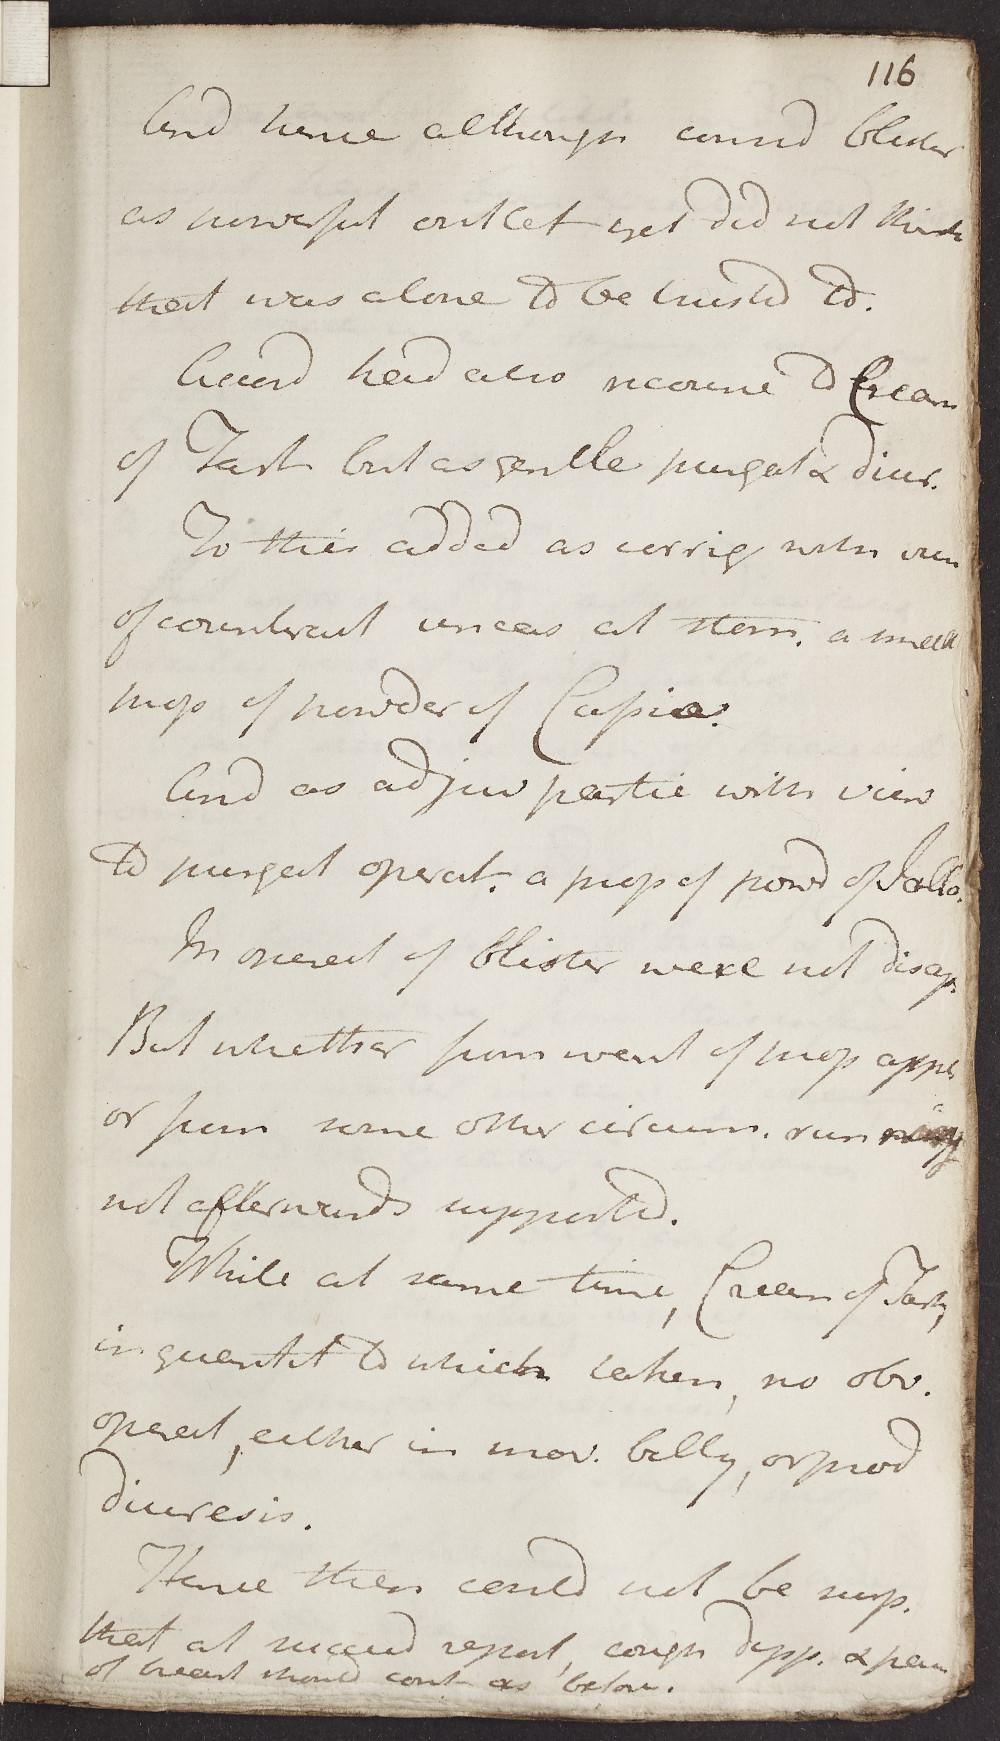 116
And hence although consid blister
as powerful outlet yet did not think
that was alone to be trusted to.
Accord had also recourse to Cream
of Tart but as gentle purgat & diur.
To this added as corrig with view
of counteract uneas at stom. a small
prop of powder of Cassia.
And as adjuv partic with view
to purgat operat. a prop of powd of Jallap.
In operat of blister were not disap.
But whether from want of prop appl
or from some other circum. running
not afterwards supported.
While at same time, Cream of Tart,
in quantit to which taken, no obv.
operat, either in mov. belly, or prod
diuresis.
Hence then could not be surp.
that at succeed report, cough dysp. & pain
of breast should cont as before.